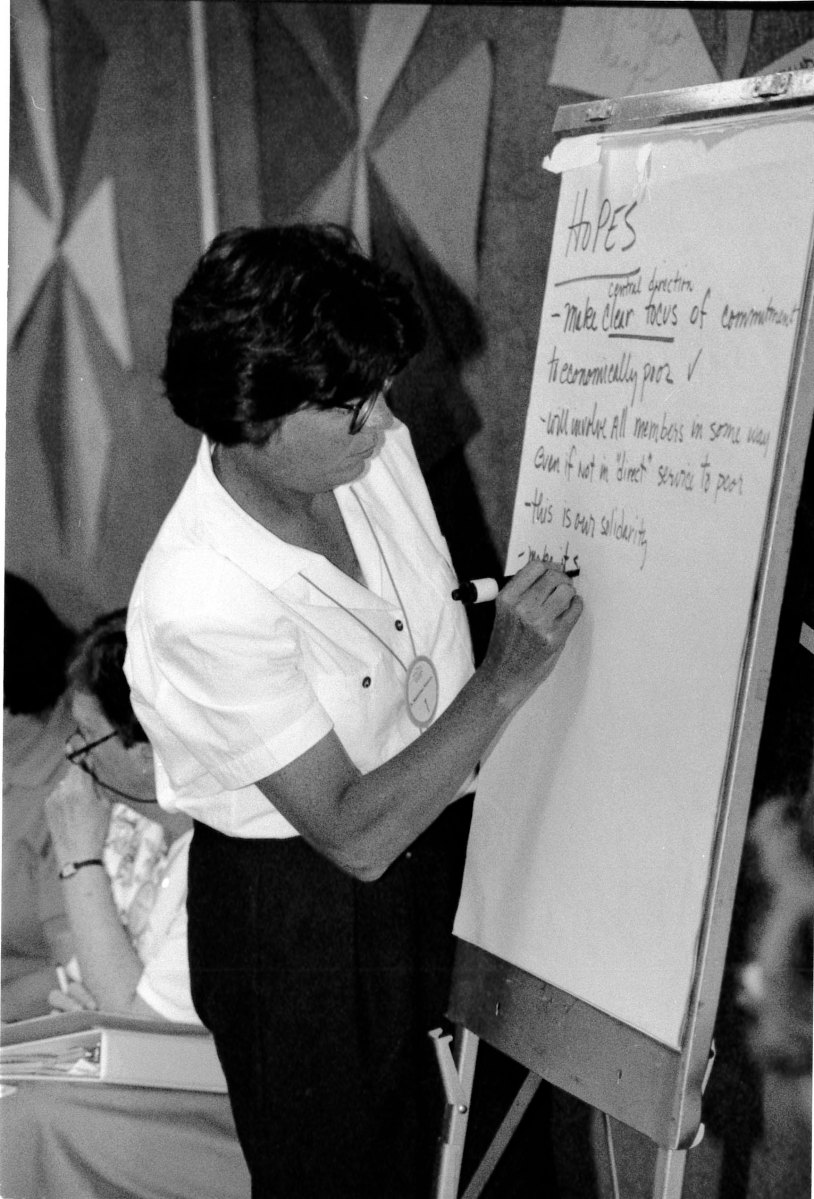 HOPES
central direction
- make clear focus of commitment
to economically poor ✓
- will involve All members in some way
Even if not in "direct" service to poor
- this is our solidarity
- make it s